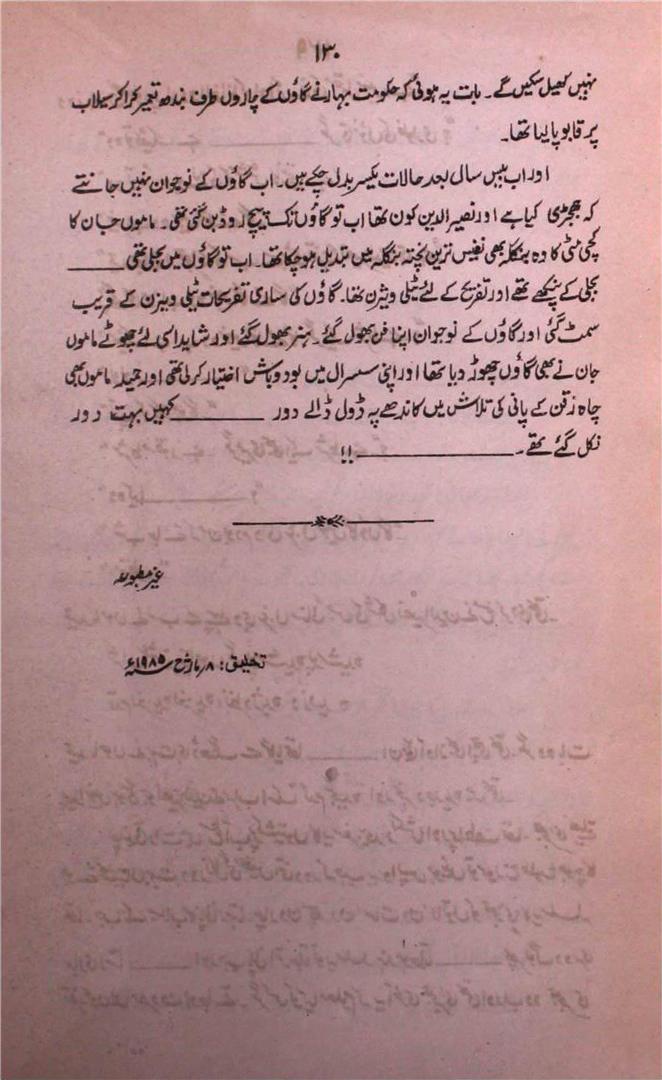 ۱۳۰
نہیں کھیل سکیں گے۔ بات یہ ہوئی کہ حکومت بہار نے گاؤں کے چاروں طرف بندھ تعمیر کرا کر سیلاب
پر قابو پا لیا تھا۔
اور اب بیس سال بعد حالات یکسر بدل چکے ہیں۔ اب گاؤں کے نوجوان نہیں جانتے
کہ جھجڑی کیا ہے اور نصیر الدین کون تھا اب تو گاؤں تک پیچ روڈ بن گئی تھی۔ ماموں جان کا
کچی مٹی کا وہ بنگلہ بھی نفیس ترین پختہ بنگلہ میں تبدیل ہو چکا تھا۔ اب تو گاؤں میں بجلی تھی ــــــــ
بجلی کے پنکھے تھے اور تفریح کے لئے ٹیلی ویژن تھا۔ گاؤں کی ساری تفریحات ٹیلی ویژن کے قریب
سمٹ گئی اور گاؤں کے نوجوان اپنا فن بھول گئے۔ ہنر بھول گئے اور شاید اسی لئے چھوٹے ماموں
جان نے بھی گاؤں چھوڑ دیا تھا اور اپنی سسرال میں بود و باش اختیار کر لی تھی اور حمید ماموں بھی
چاہ زقن کے پانی کی تلاش میں کاندھے پہ ڈول ڈالے دور ــــــــــــ کہیں بہت دور
نکل گئے تھے۔ ــــــــــــــــــــ !!
غیر مطبوعہ
تخلیق: ۸ر مارچ ۱۹۸۵ء